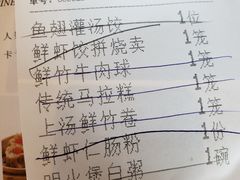 单号:
人
卡
鱼翅灌汤饺 1位
鲜虾饺拼烧卖 1笼
鲜竹牛肉球 1笼
传统马拉糕 1笼
上汤鲜竹卷 1笼
鲜虾仁肠粉 1份
明火煲白粥 1碗